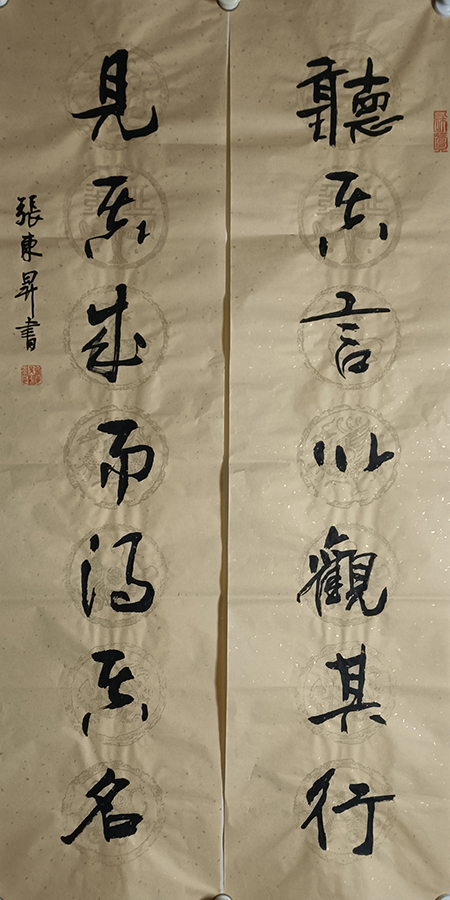 聽其言以觀其行
見其成而得其名
張東昇書